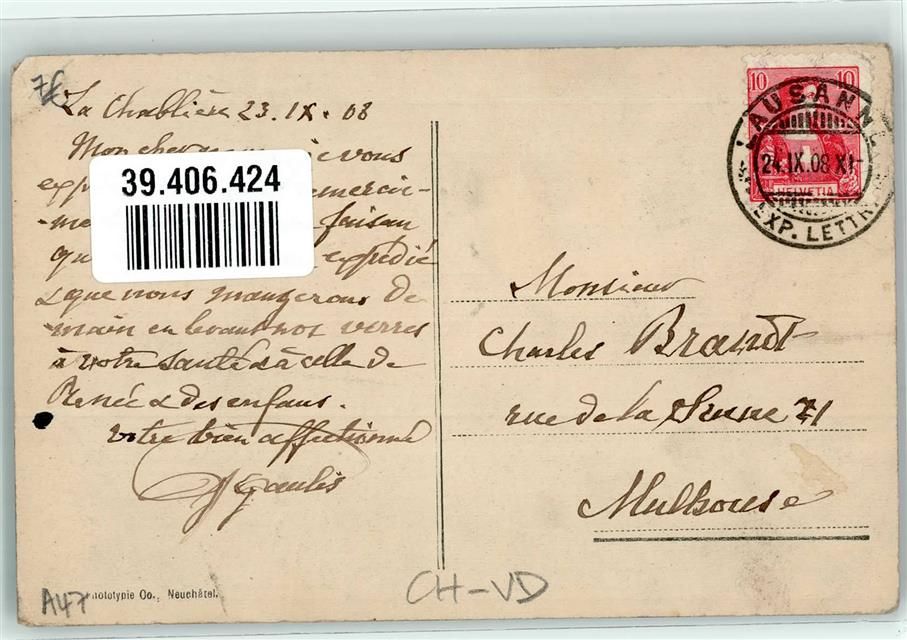 7€
La Chablière 23.IX.08
Mon cher je vous
39.406.424
faisan
qu expédié
& que nous mangerons de
main en levant nos verres
à votre santé & à celle de
Renée & des enfans.
Votre bien affectionné
Gaulis
10 10
HELVETIA
LAUSANNE
24.IX.08 XI-
EXP. LETTR.
Monsieur
Charles Brandt
rue de la 71
Mulhouse
A47 hototypie Co., Neuchâtel.
CH-VD